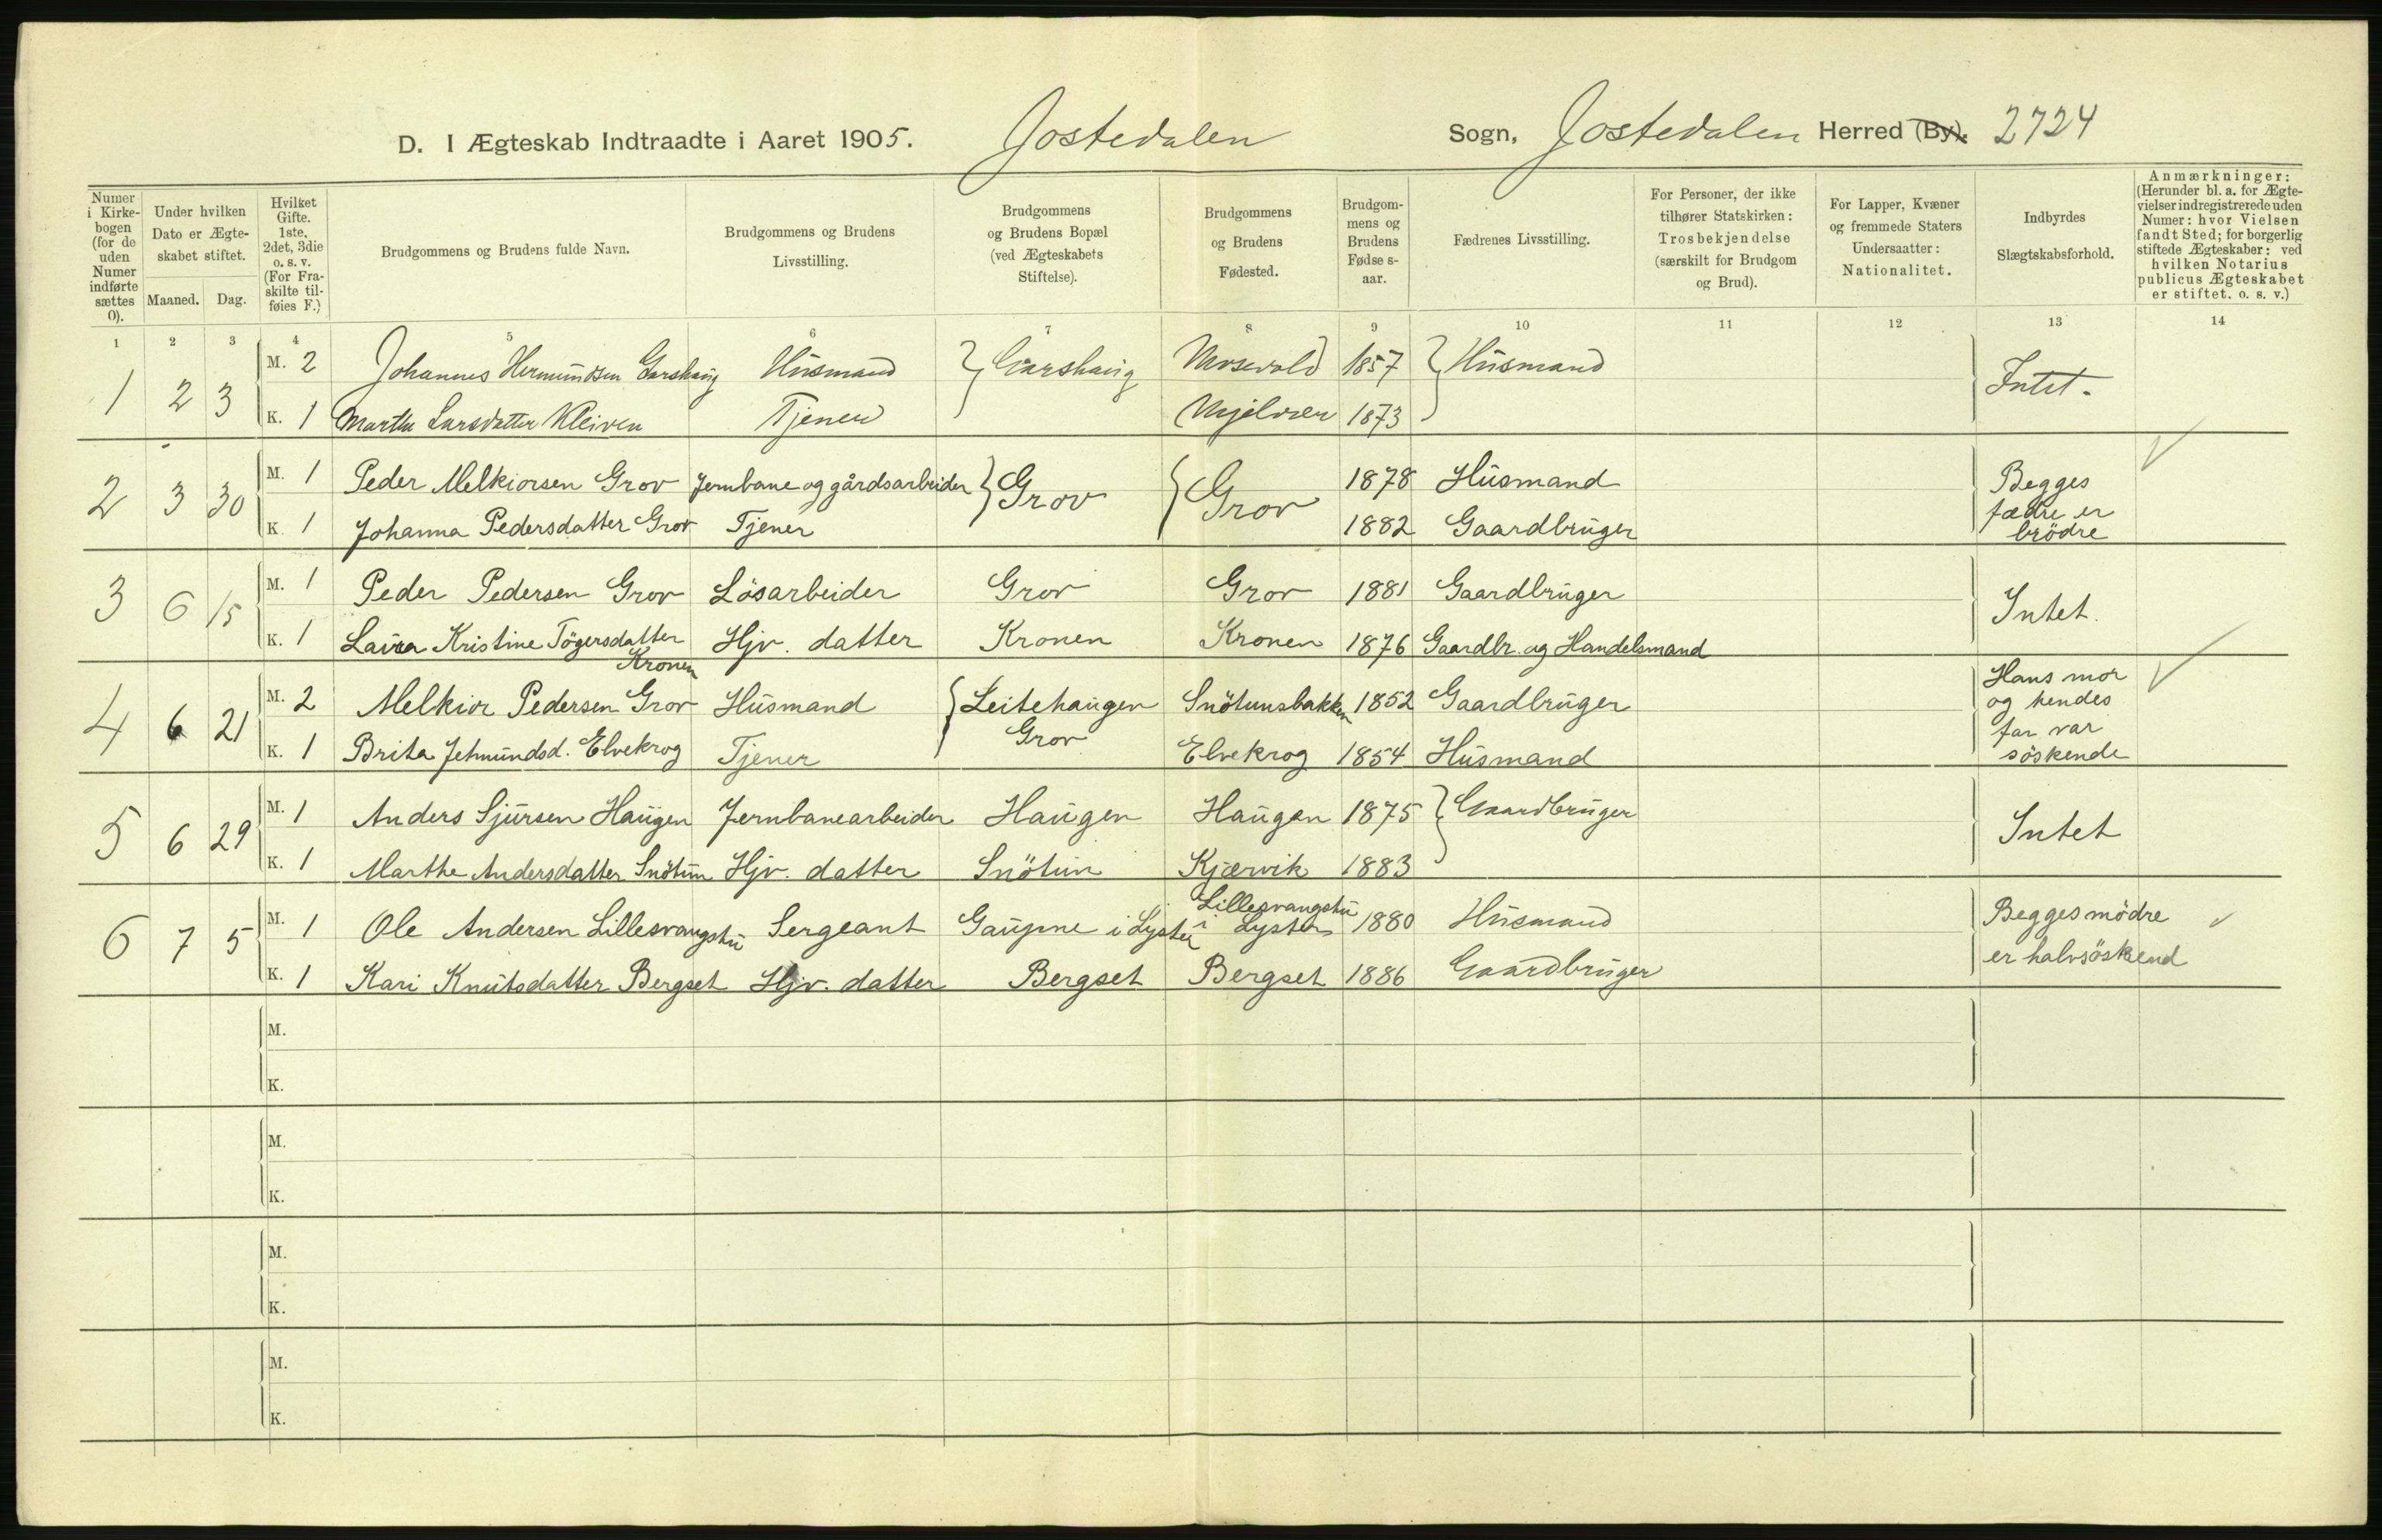 D. I Ægteskab Indtraadte i Aaret 1905. Jostedalen Sogn, Jostedalen Herred (By). 2724
Numer i Kirkebogen (for de uden Numer indførte sættes 0).
Under hvilken Dato er Ægteskabet stiftet.
Maaned. Dag.
Hvilket Gifte. 1ste, 2det, 3die o. s. v. (For Fraskilte tilføies F.)
Brudgommens og Brudens fulde Navn.
Brudgommens og Brudens Livsstilling.
Brudgommens og Brudens Bopæl (ved Ægteskabets Stiftelse).
Brudgommens og Brudens Fødested.
Brudgommens og Brudens Fødselsaar.
Fædrenes Livsstilling.
For Personer, der ikke tilhører Statskirken: Trosbekjendelse (særskilt for Brudgom og Brud).
For Lapper, Kvæner og fremmede Staters Undersaatter: Nationalitet.
Indbyrdes Slægtskabsforhold.
Anmærkninger: (Herunder bl. a. for Ægtevielser indregistrerede uden Numer: hvor Vielsen fandt Sted; for borgerlig stiftede Ægteskaber: ved hvilken Notarius publicus Ægteskabet er stiftet. o. s. v.)
1 2 3 4 5 6 7 8 9 10 11 12 13 14
1 2 3 M. 2 Johannes Hermundsen Garshaug Husmand Garshaug 1857 Husmand Intet.
K. 1 Marthe Larsdatter Kleiven Tjener Mjelvær 1873
2 3 30 M. 1 Peder Melkiorsen Grov Jernbane og gårdsarbeider Grov Grov 1878 Husmand Begges fædre er brödre
K. 1 Johanna Pedersdatter Grov Tjener 1882 Gaardbruger
3 6 15 M. 1 Peder Pedersen Grov Lösarbeider Grov Grov 1881 Gaardbruger Intet.
K. 1 Laura Kristine Tögersdatter Kronen Hjv. datter Kronen Kronen 1876 Gaardbr. og Handelsmand
4 6 21 M. 2 Melkior Pedersen Grov Husmand Leitehaugen Grov Snötunsbakken 1852 Gaardbruger Hans mor og hendes far var söskende
K. 1 Brita Jetmundsd. Elvekrog Tjener Elvekrog 1854 Husmand
5 6 29 M. 1 Anders Sjursen Haugen Jernbanearbeider Haugen Haugen 1875 Gaardbruger Intet
K. 1 Marthe Andersdatter Snötun Hjv. datter Snötun Kjærvik 1883
6 7 5 M. 1 Ole Andersen Lillesvangstu Sergeant Gaupne i Lyster Lillesvangstu i Lyster 1880 Husmand Begges mödre er halvsöskend
K. 1 Kari Knutsdatter Bergset Hjv. datter Bergset Bergset 1886 Gaardbruger
M.
K.
M.
K.
M.
K.
M.
K.